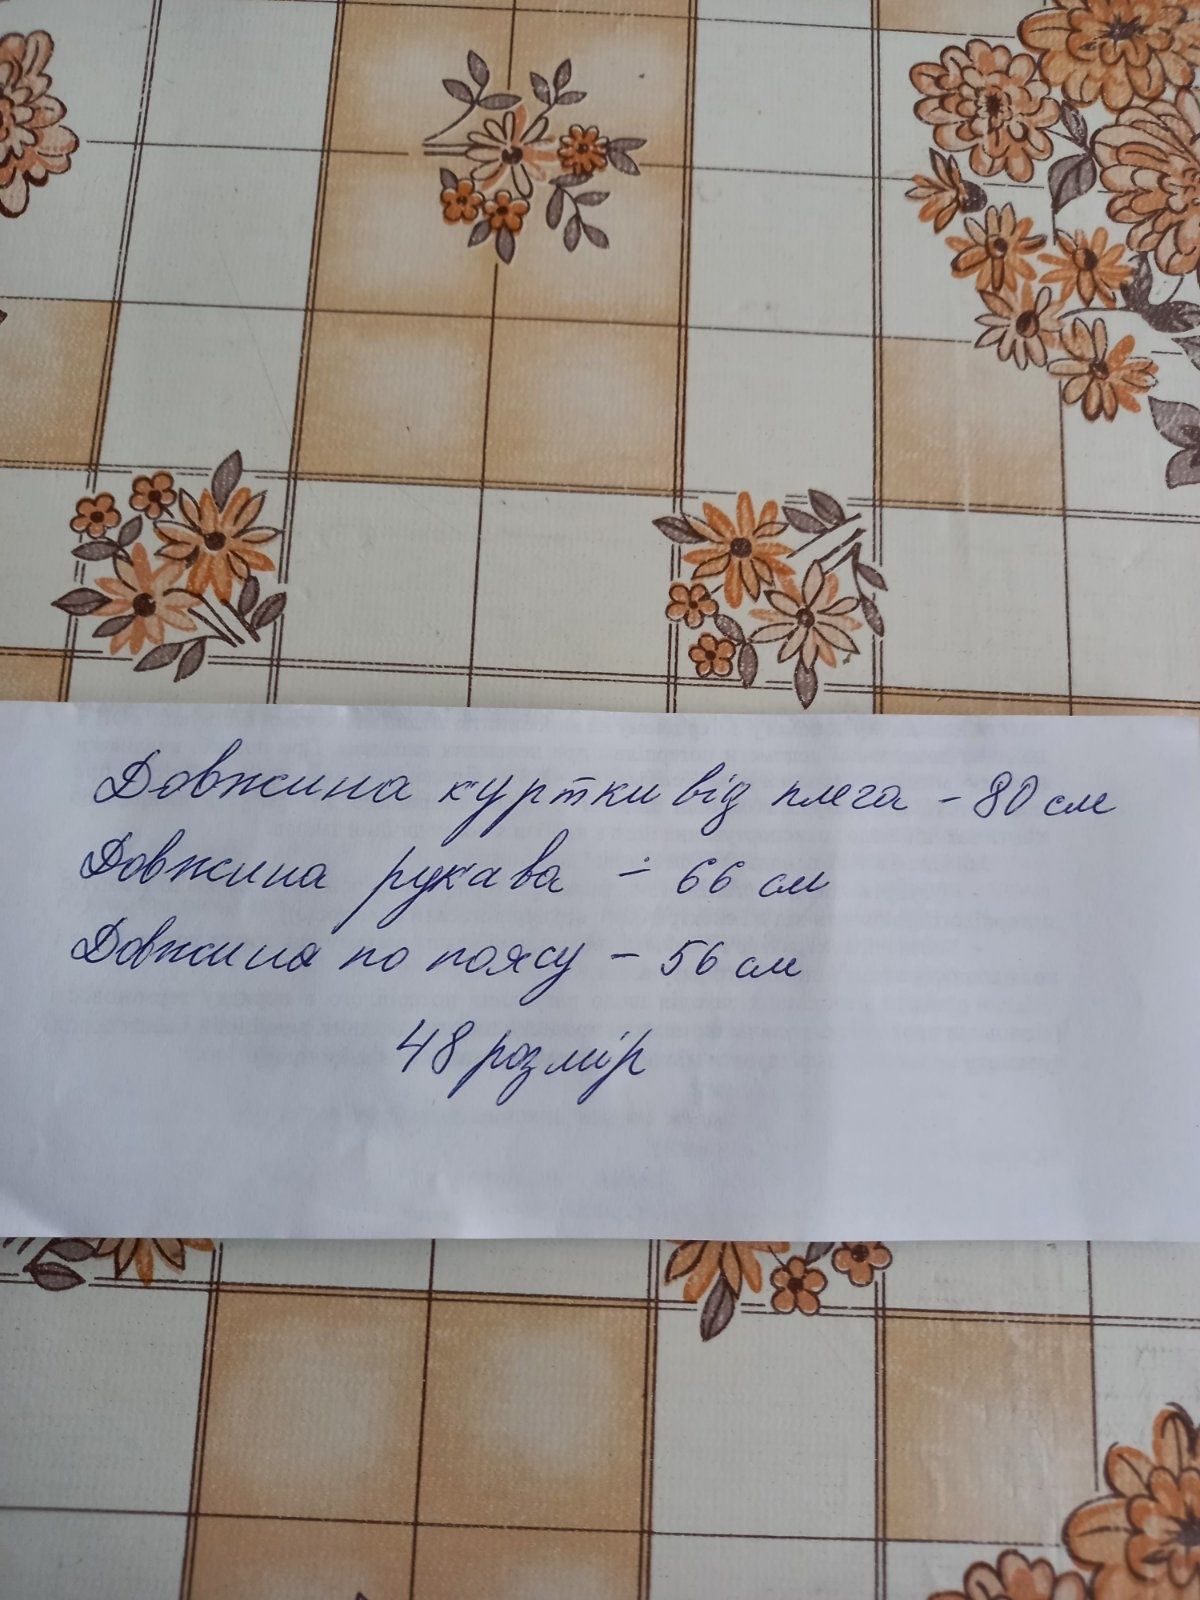 Довжина куртки від плеча - 80 см
Довжина рукава - 66 см
Довжина по поясу - 56 см
48 розмір